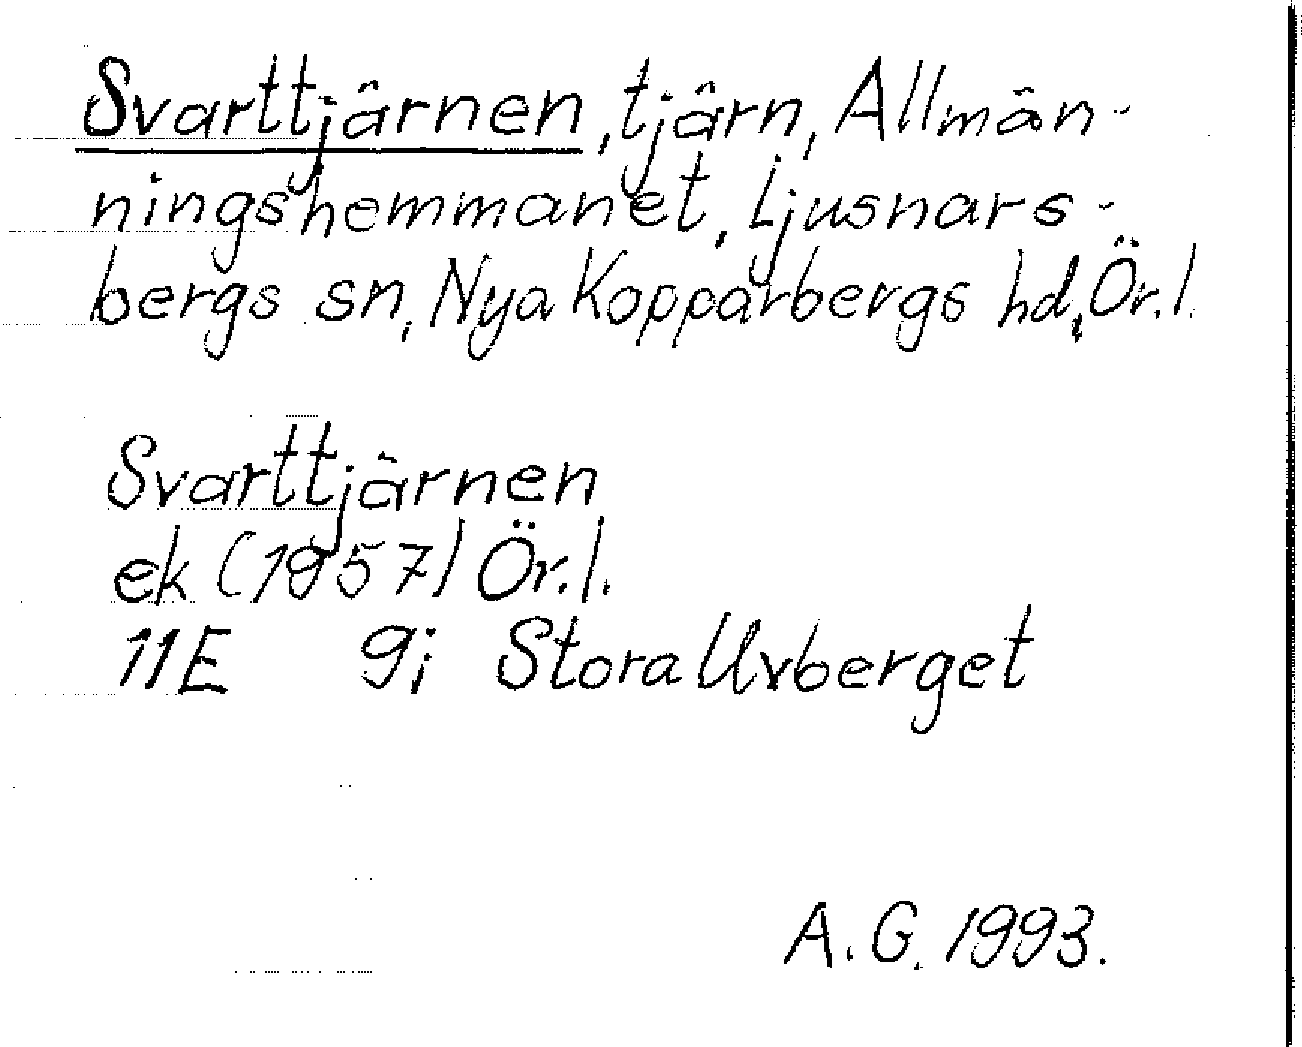 Svarttjärnen, tjärn, Allmän-
ningshemmanet, Ljusnars-
bergs sn, Nya Kopparbergs hd, Ör.l.
Svarttjärnen
ek (1957) Ör.l.
11E 9i Stora Uvberget
A.G. 1993.